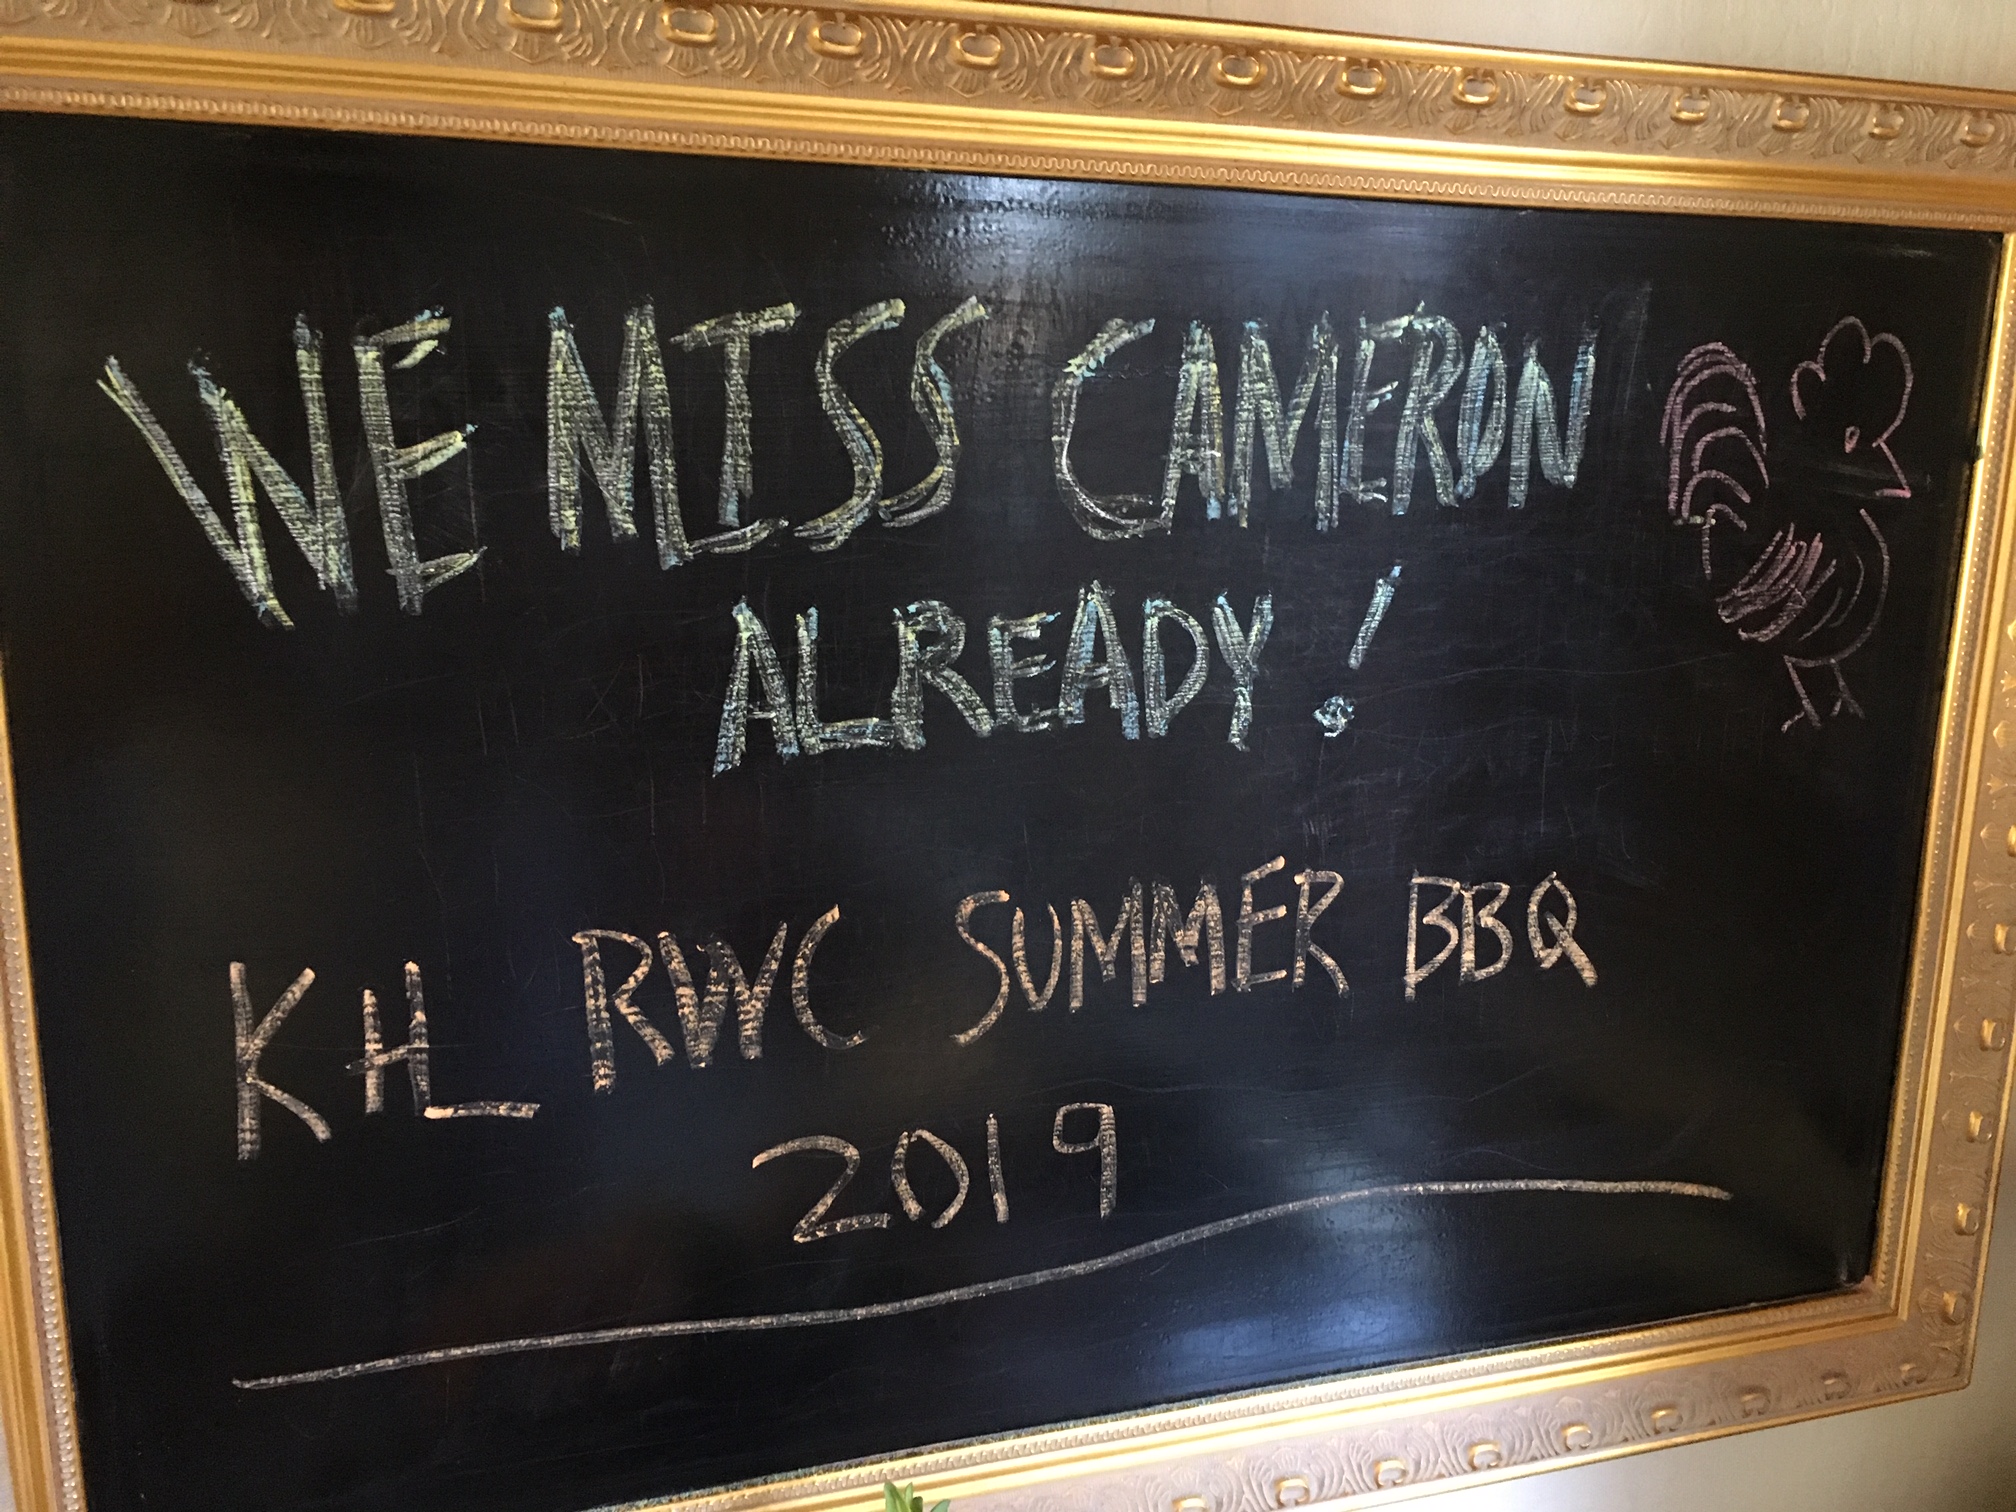 WE MISS CAMERON
ALREADY!
KHL RWC SUMMER BBQ
2019